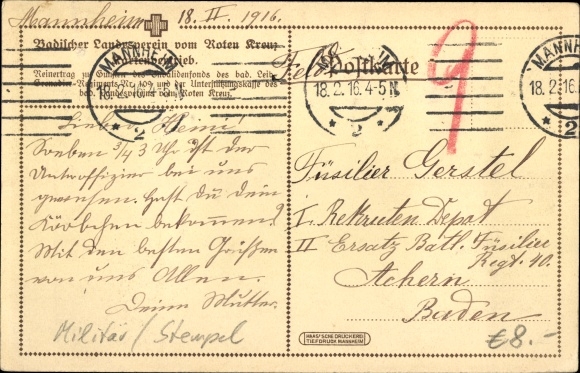 Mannheim 18. II. 1916.
Badischer Landesverein vom Roten Kreuz
Kartenbetrieb.
Reinertrag zu Gunsten des Invalidenfonds des bad. Leib-
Grenadier-Regiments Nr. 109 und der Unterstützungskasse des
bad. Landesvereins vom Roten Kreuz.
Feldpostkarte
MANNHEIM
18.2.16. 4-5N
* 2 *
MANNHEIM
18.2.16. 4-5N
* 2 *
MANNHEIM
18.2.16
* 2
9
Lieber Heini!
Soeben 3/4 3 Uhr ist der
Unteroffizier bei uns
gewesen. Hast du dein
Körbchen bekommen?
Mit den besten Grüßen
von uns Allen.
Deine Mutter.
Füsilier Gerstel
I. Rekruten Depot
II Ersatz Batl. Füsilier
Regt. 40.
Achern
Baden
Militär / Stempel
€8.-
HAAS'SCHE DRUCKEREI
TIEFDRUCK MANNHEIM